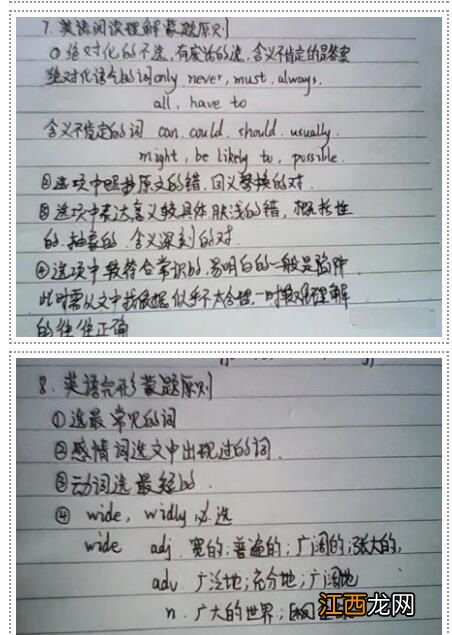 7. 英语阅读理解蒙题原则
①绝对化的不选，有废话的选，含义不肯定的是答案
绝对化语气的词only, never, must, always,
all, have to
含义不肯定的词 can, could, should, usually,
might, be likely to, possible.
②选项中照抄原文的错，同义替换的对.
③选项中表达意义较具体肤浅的错，概括性
的、抽象的、含义深刻的对.
④选项中较符合常识的、易明白的一般是陷阱
此时需从文中找依据，似乎不太合理，一时较难理解
的往往正确
8. 英语完形蒙题原则
①选最常见的词
②感情词选文中出现过的词.
③动词选最短的.
④ wide, widly 必选
wide adj. 宽的；普遍的；广阔的；张大的,
adv. 广泛地；充分地；广阔地
n. 广大的世界；
江西龙网